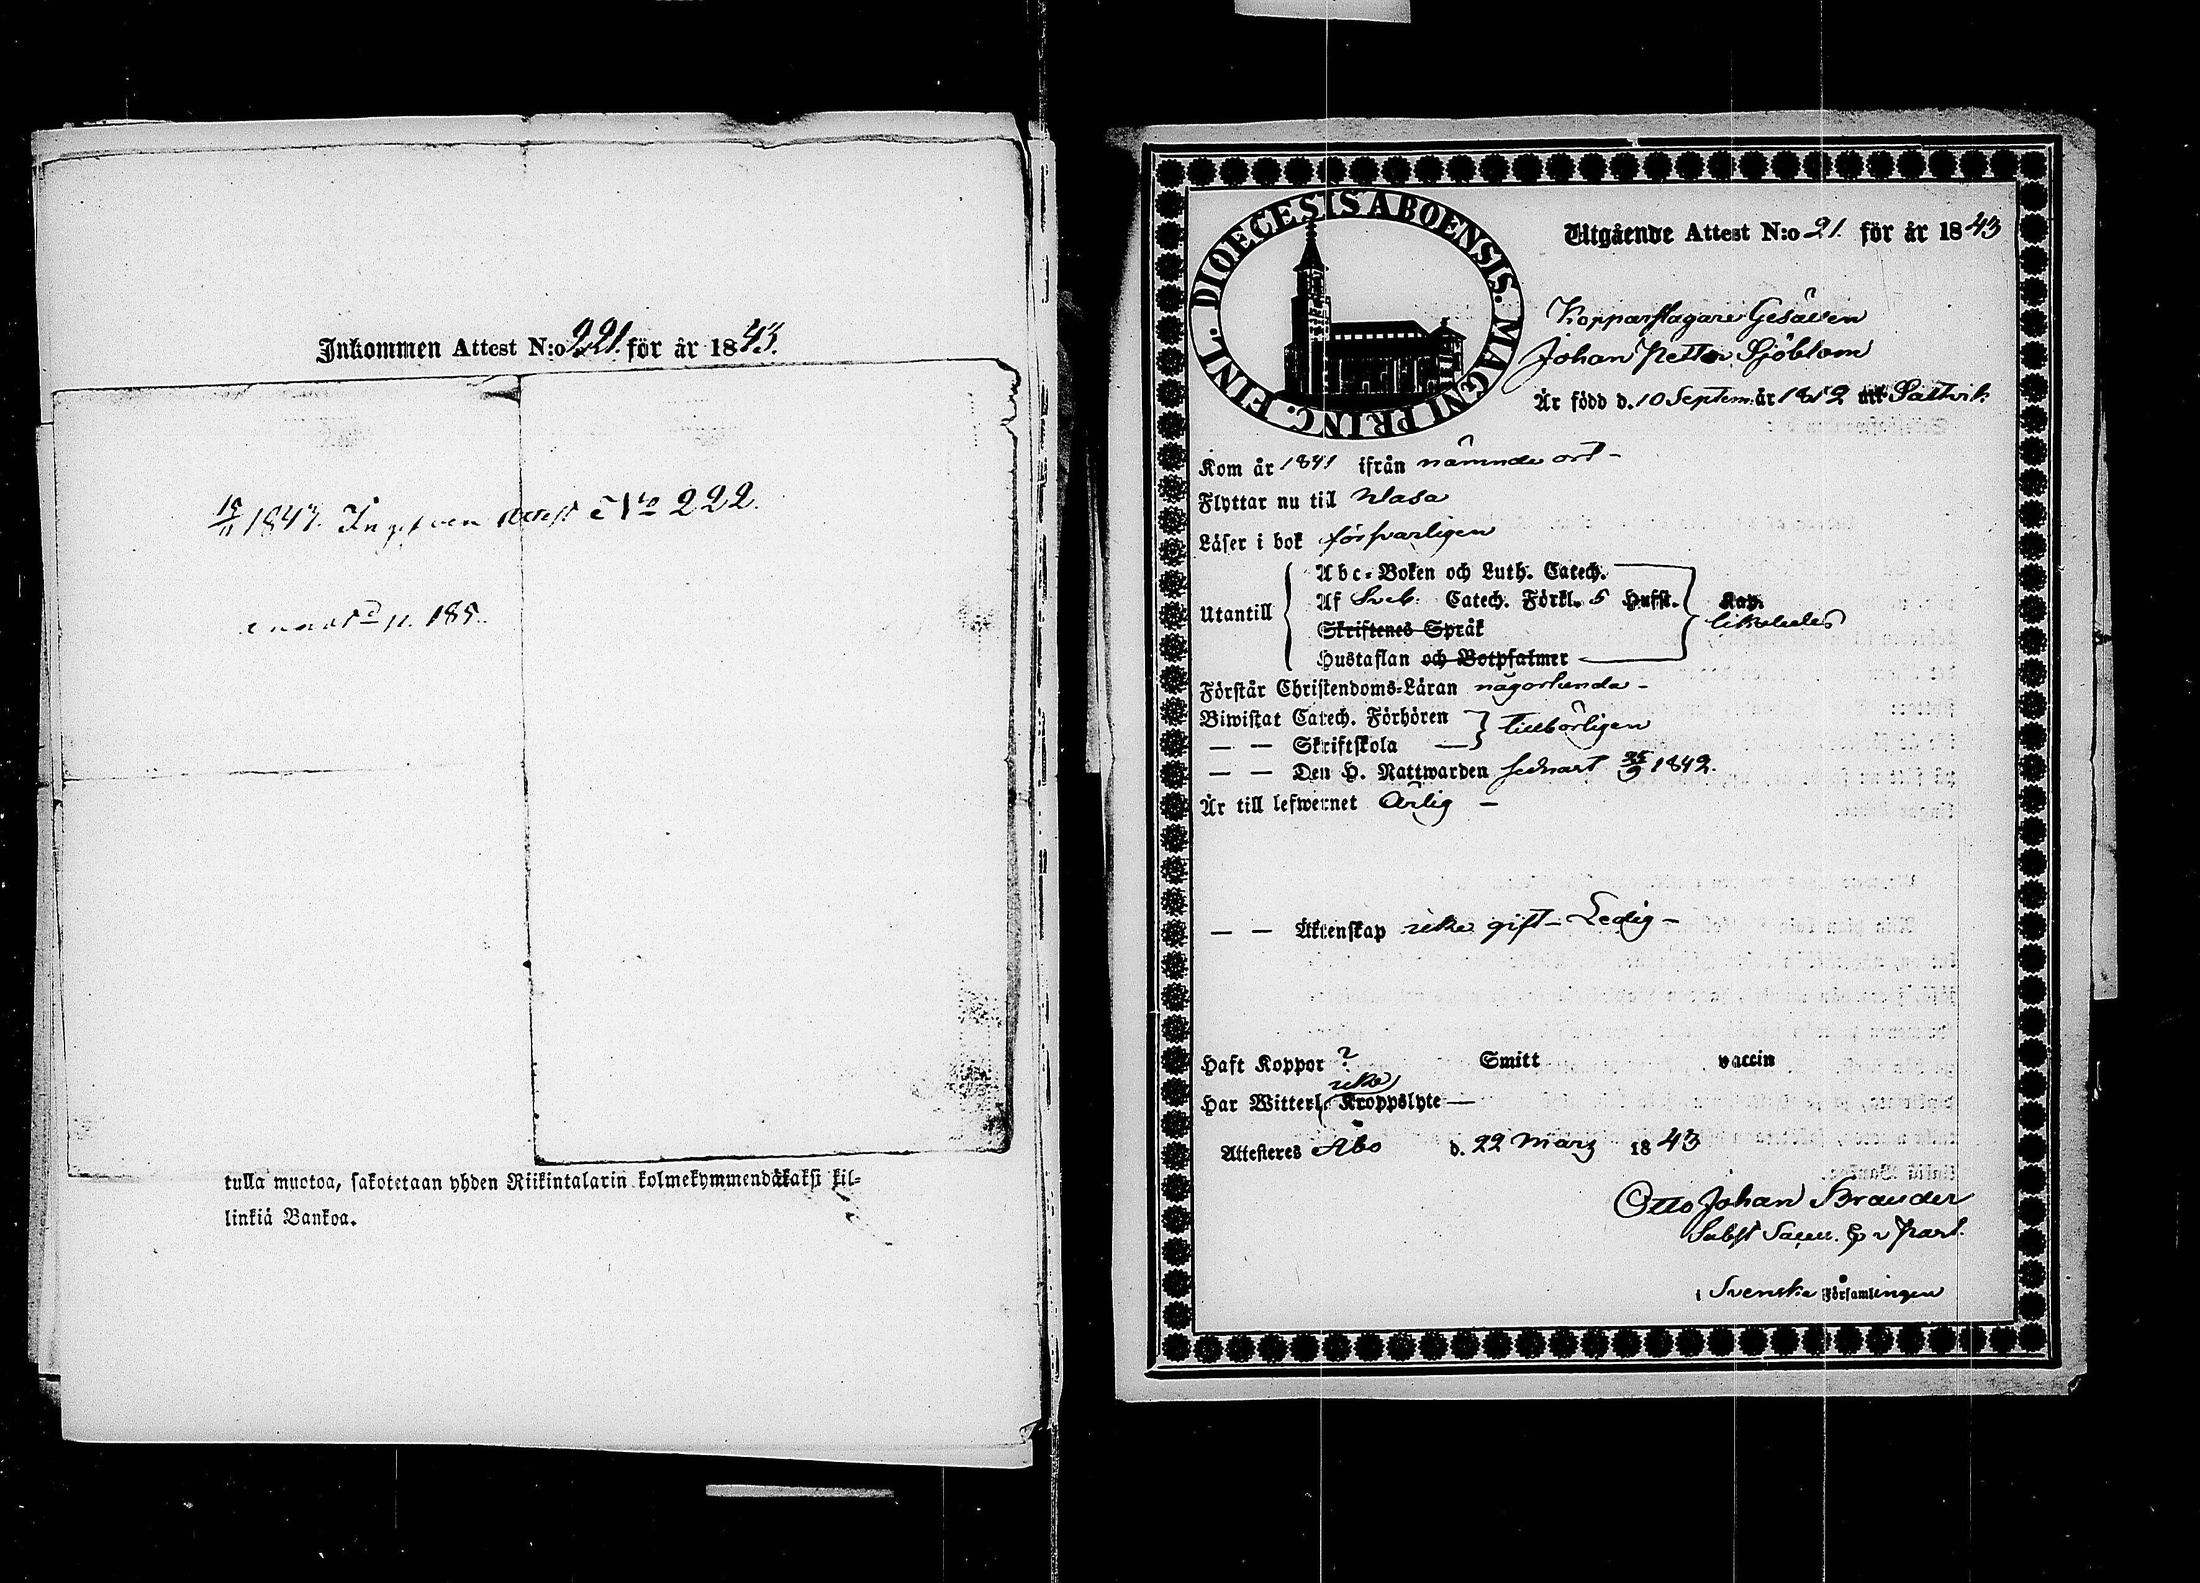 Inkommen Attest N:o 221. för år 1843.
15/11 1843. Ingifven attest No 222.
annot. p. 185.
tulla muotoa, sakotetaan yhden Riikintalarin kolmekymmendäkaksi kil-
linkiä Bankoa.
DIOECESIS ABOENSIS. MAGNI PRINC. FINL.
Utgående Attest N:o 21. för år 1843
Kopparslagare Gesällen
Johan Petter Sjöblom
Är född d. 10 Septem. år 1812 uti Saltvik
Kom år 1841 ifrån nämnde ort –
Flyttar nu till Wasa
Läser i bok försvarligen
Abc-Boken och Luth. Catech.
Utantill
Af Sveb. Catech. Förkl. 5 Hufst. Kap.
likaledes
Skriftenes Språk
Hustaflan och Botpsalmer
Förstår Christendoms-Läran någorlunda –
Biwistat Catech. Förhören
tillbörligen
— — Skriftskola —
— — Den H. Nattwarden sednast 25/9 1842.
Är till lefwernet Ärlig –
— — Äktenskap icke gift – Ledig –
Haft Koppor ? Smitt vaccin
icke
Har Witterl. Kroppslyte —
Attesteres Åbo d. 22 Mars 1843
Otto Johan Brander
i Svenska Församlingen